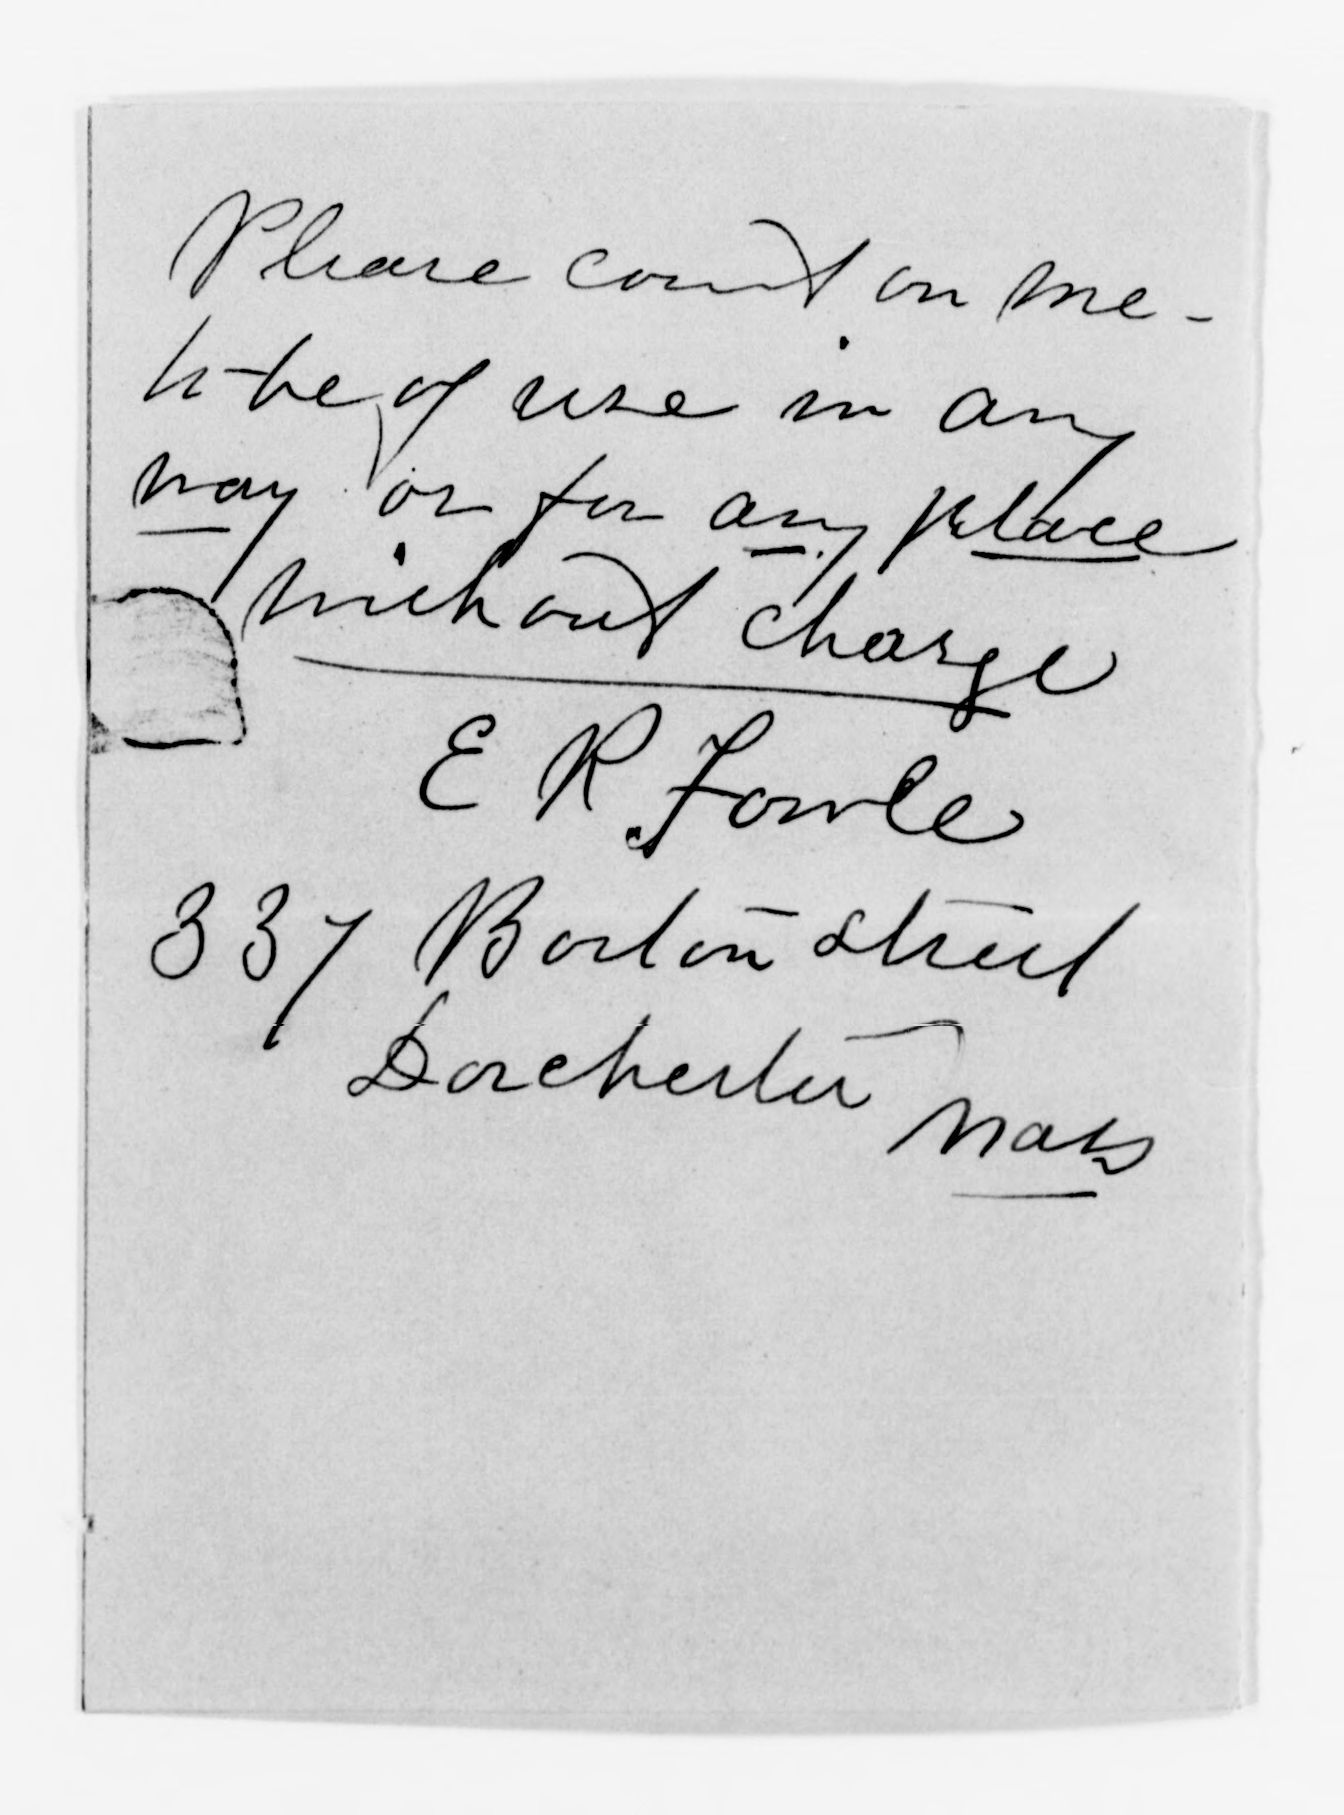 Please count on me -
to be of use in any
way or for any place
without charge
E R Fowle
337 Boston Street
Dorchester Mass